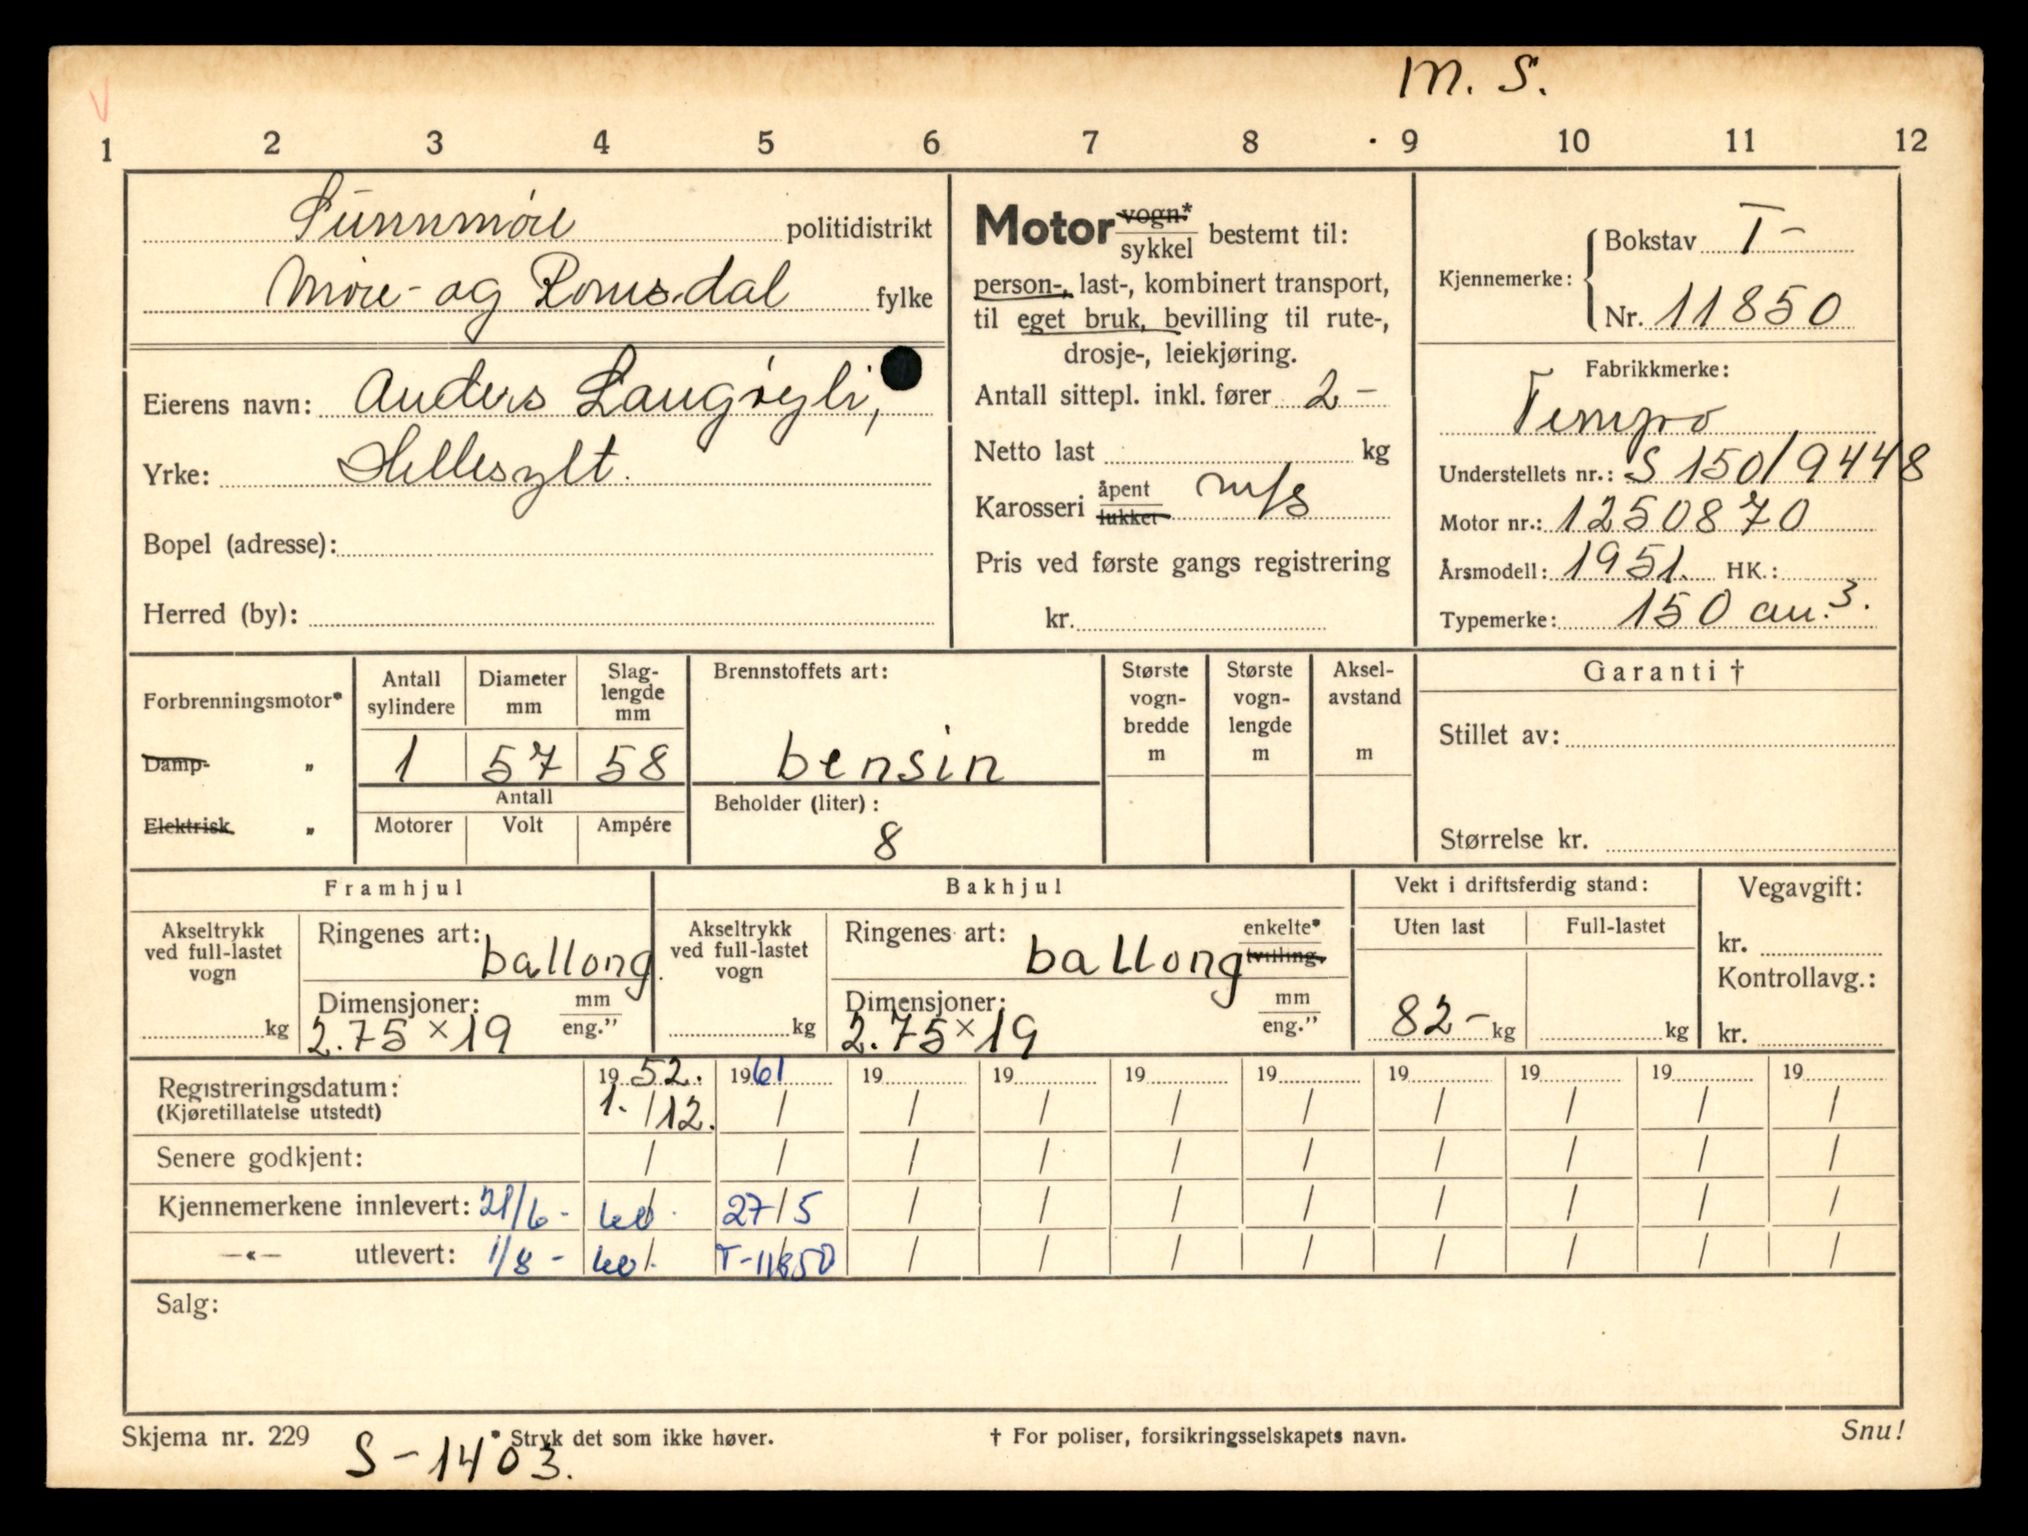 M. S.
1 2 3 4 5 6 7 8 9 10 11 12
Sunnmøre politidistrikt
Møre- og Romsdal fylke
Eierens navn: Anders Langøygli,
Yrke: Hellesylt.
Bopel (adresse):
Herred (by):
Motor vogn* sykkel bestemt til:
person-, last-, kombinert transport,
til eget bruk, bevilling til rute-,
drosje-, leiekjøring.
Antall sittepl. inkl. fører 2-
Netto last kg
Karosseri åpent lukket m/s
Pris ved første gangs registrering
kr.
Kjennemerke: Bokstav T-
Nr. 11850
Fabrikkmerke:
Tempo
Understellets nr.: S 150/9448
Motor nr.: 1250870
Årsmodell: 1951. HK.:
Typemerke: 150 cm.3.
Forbrenningsmotor*
Damp- "
Elektrisk "
Antall sylindere
1
Diameter mm
57
Slag-lengde mm
58
Antall
Motorer Volt Ampére
Brennstoffets art:
bensin
Beholder (liter):
8
Største vogn-bredde m
Største vogn-lengde m
Aksel-avstand m
Garanti †
Stillet av:
Størrelse kr.
Framhjul
Akseltrykk ved full-lastet vogn
kg
Ringenes art: ballong.
Dimensjoner: mm eng."
2.75 x 19
Bakhjul
Akseltrykk ved full-lastet vogn
kg
Ringenes art: ballong enkelte* tvilling.
Dimensjoner: mm eng."
2.75 x 19
Vekt i driftsferdig stand:
Uten last Full-lastet
82- kg kg
Vegavgift:
kr.
Kontrollavg.:
kr.
Registreringsdatum: 1952. 1961 19 19 19 19 19 19 19 19
(Kjøretillatelse utstedt) 1. / 12. / / / / / / / / /
Senere godkjent: / / / / / / / / / /
Kjennemerkene innlevert: 21/6- 60. 27/5 / / / / / / / /
—«— utlevert: 1/8- 60. T-11850 / / / / / / / /
Salg:
Skjema nr. 229 * Stryk det som ikke høver. † For poliser, forsikringsselskapets navn. Snu!
S-1403.